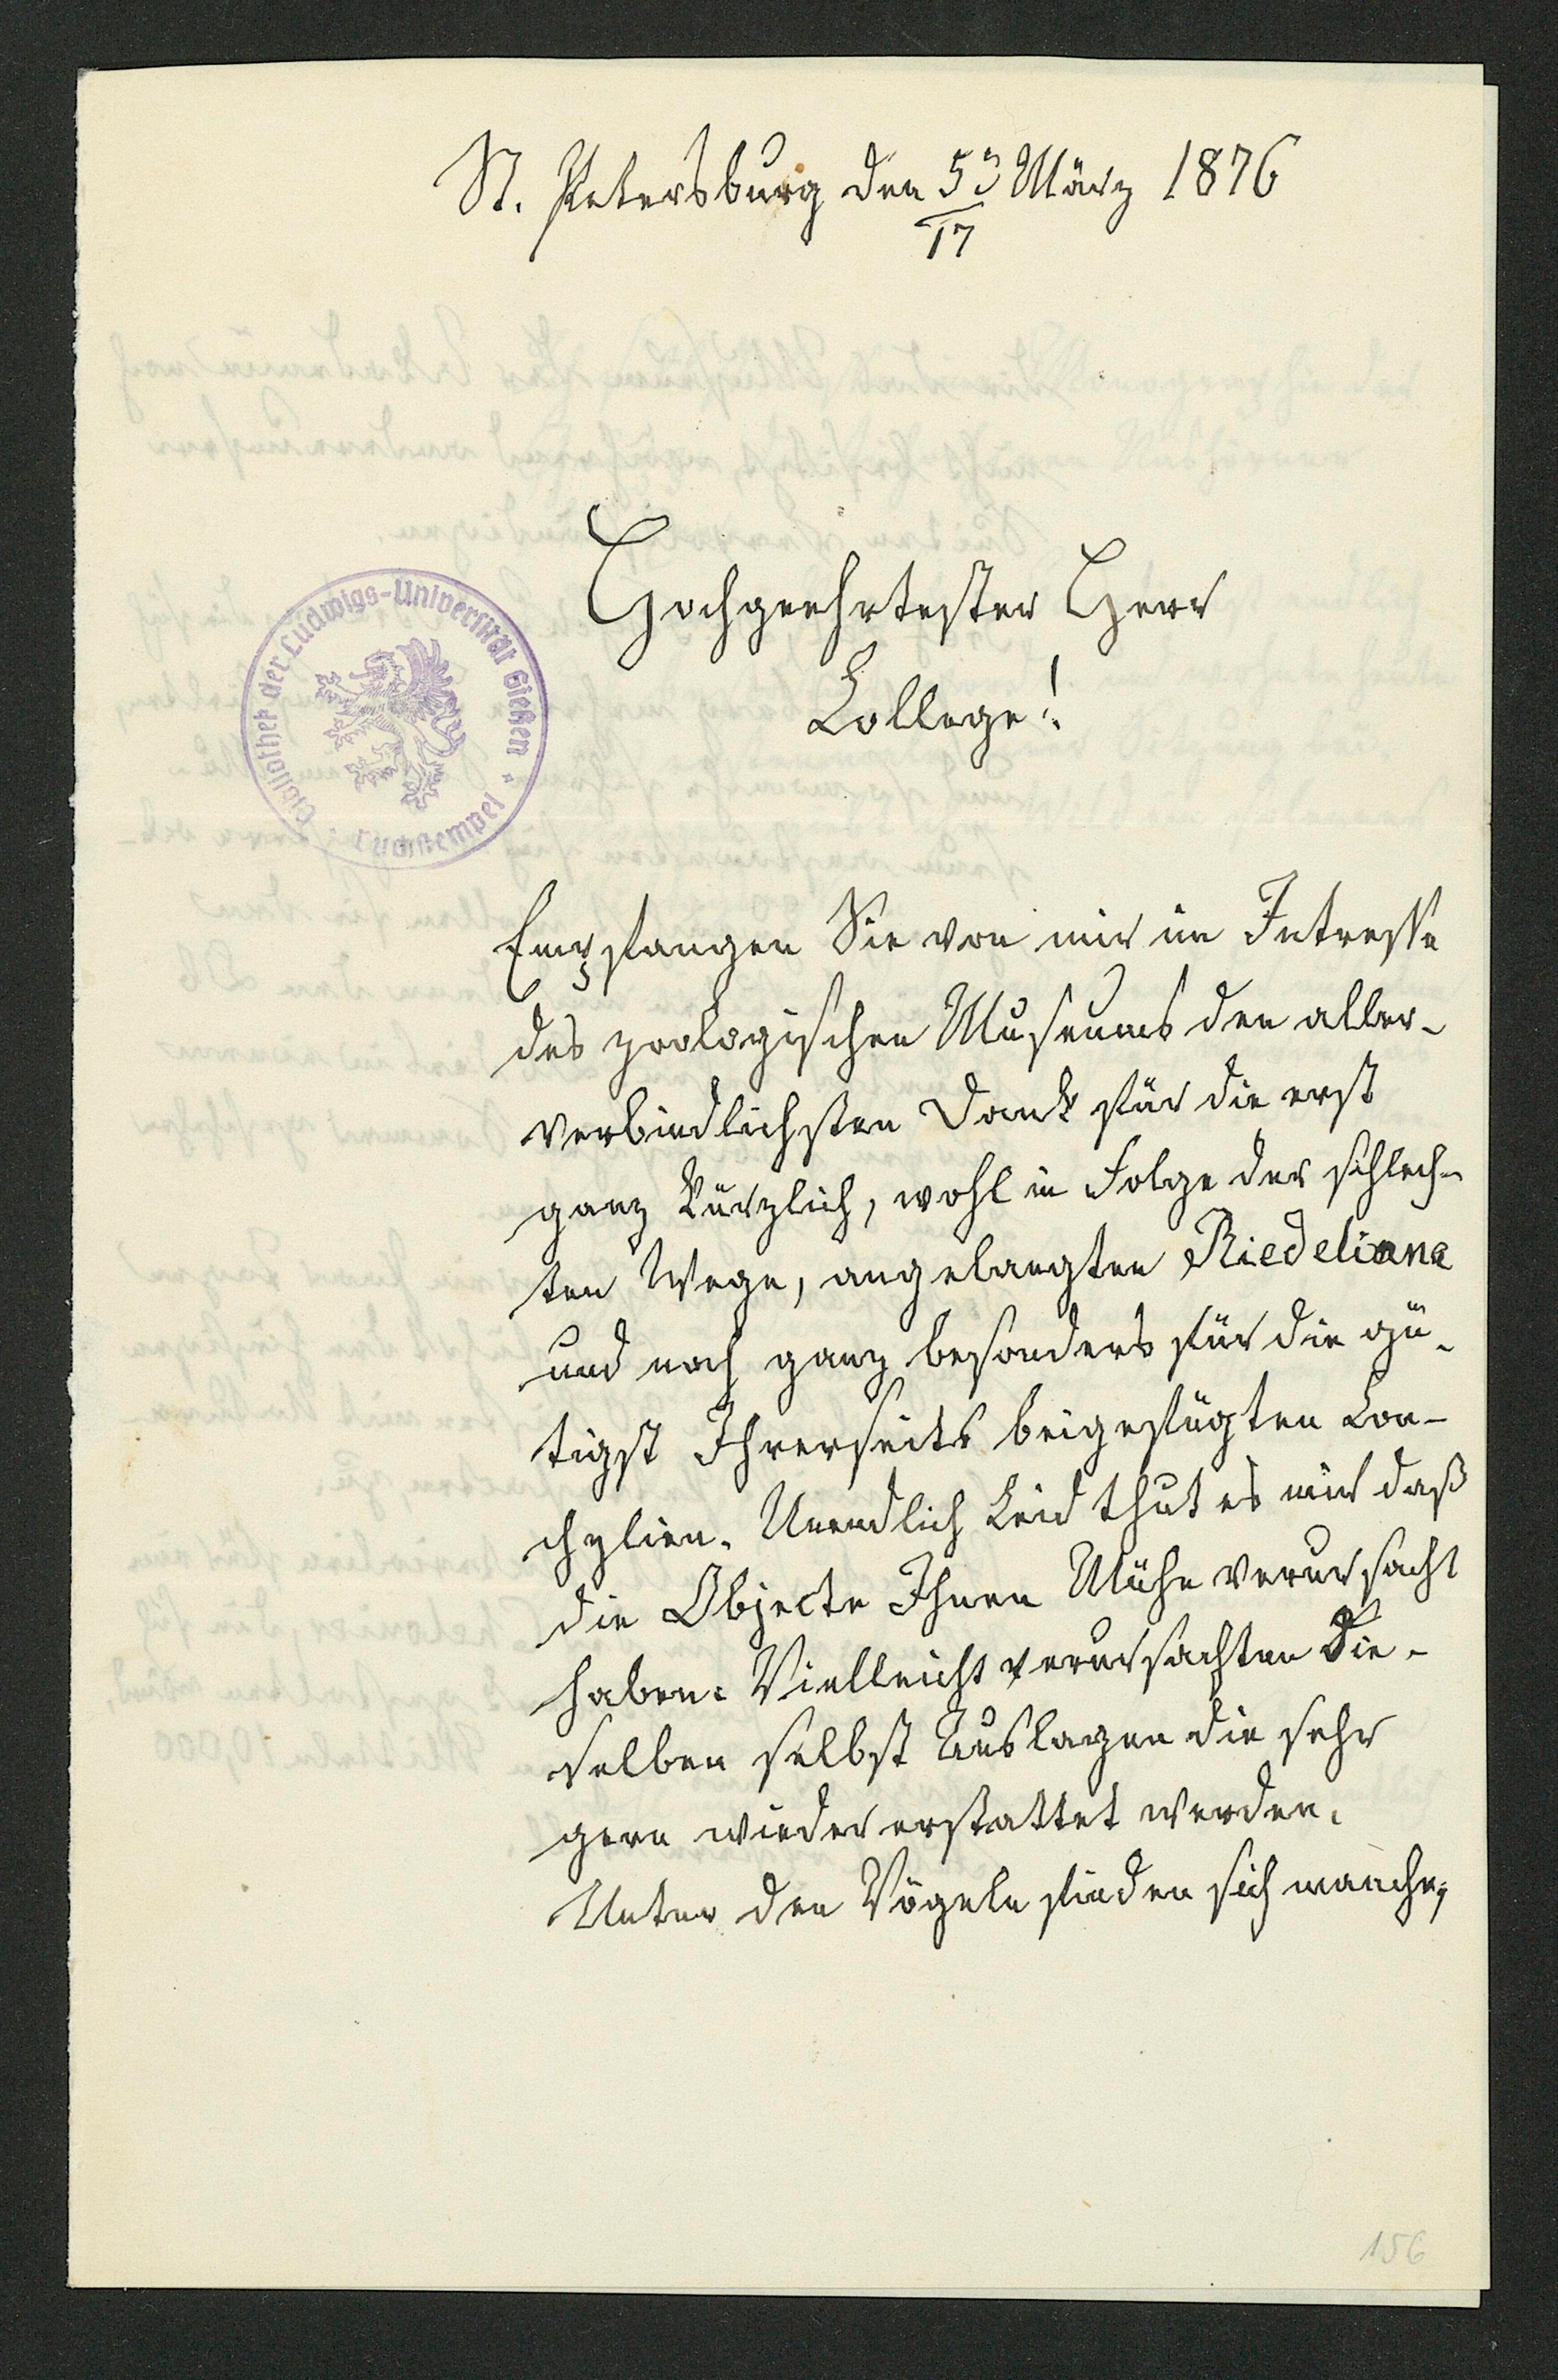 St. Petersburg den 5ⁿ März 1876
17
Hochgeehrtester Herr
College!
Bibliothek der Ludwigs-Universität Gießen
Tuchstempel
Empfangen Sie von mir im Intresse
des zoologischen Museums den aller-
verbindlichsten Dank für die erst
ganz kürzlich, wohl in Folge der schlech-
ten Wege, angelangten Riedeliana
und noch ganz besonders für die gü-
tigst Ihrerseits beigefügten Con-
chylien. Unendlich Leid thut es mir daß
die Objecte Ihnen Mühe verursacht
haben. Vielleicht verursachten Die-
selben selbst Auslagen die sehr
gern wiedererstattet werden.
Unter den Vögeln finden sich manche,
156